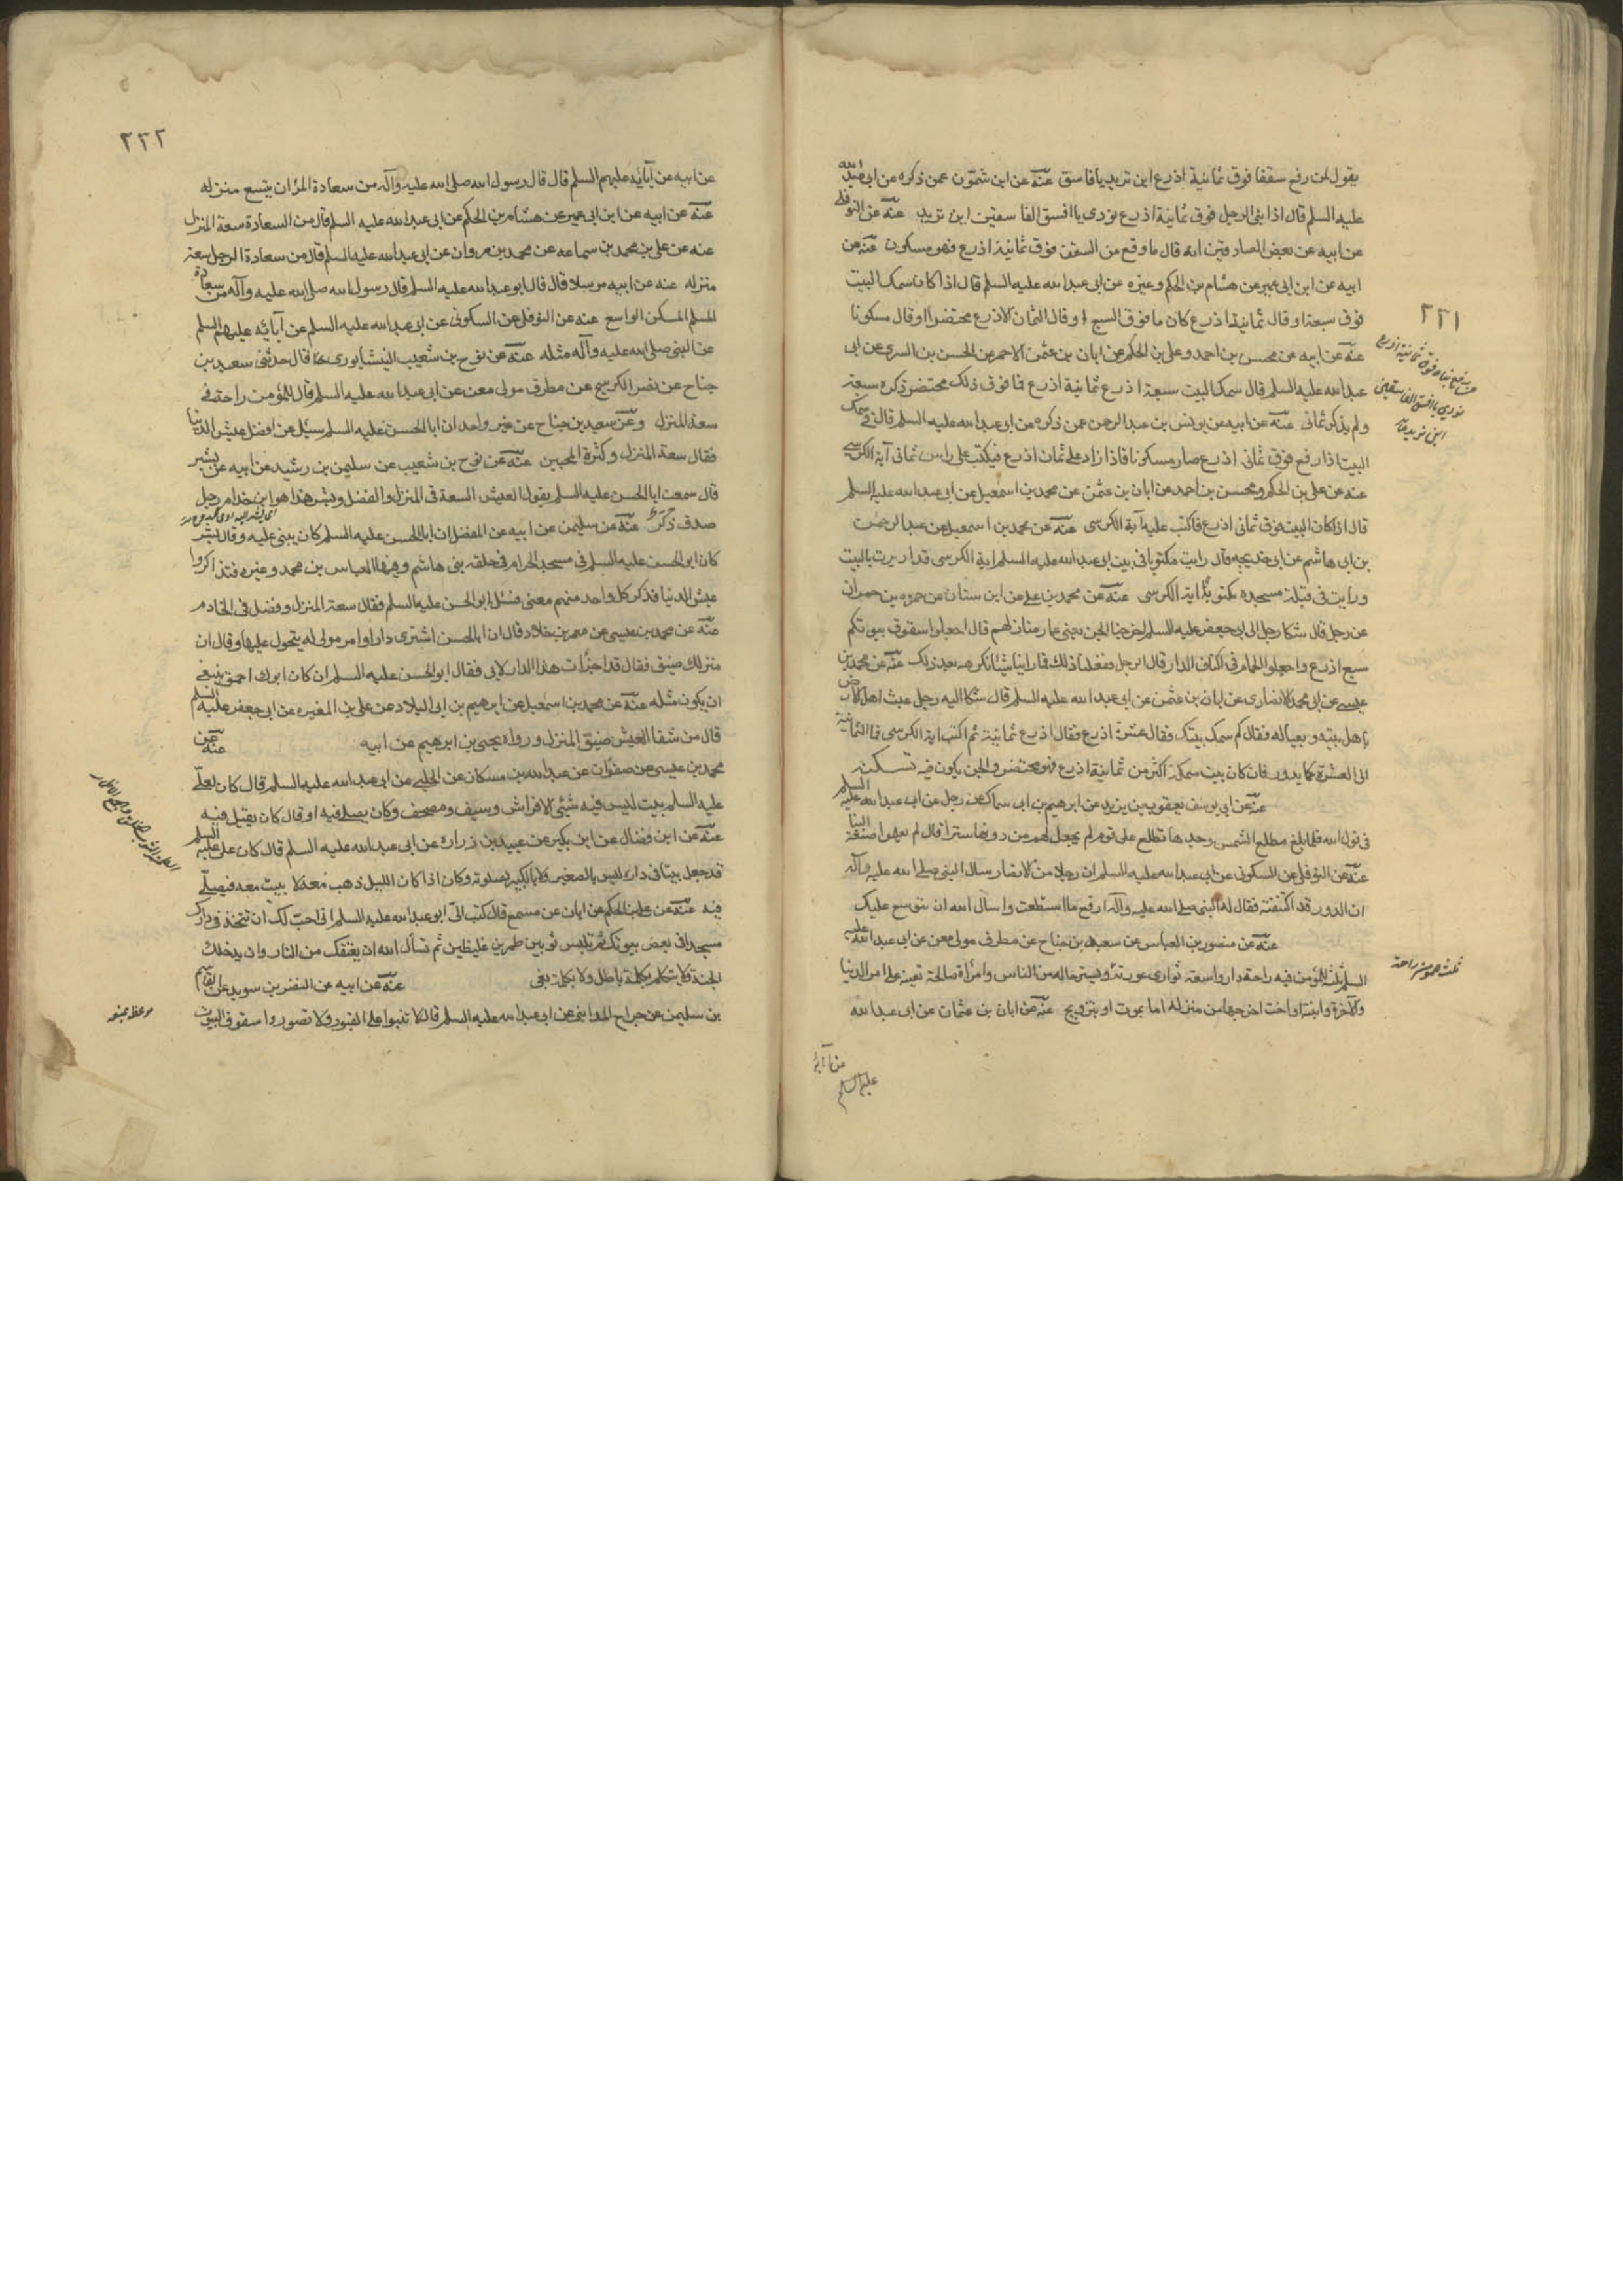 ٢٢١
يقول لمن رفع سقفا فوق ثمانية اذرع اين تريد يا فاسق عنه عن ابن شمّون عمن ذكره عن ابى عبد الله
عليه السلم قال اذا بنى الرجل فوق ثمانية اذرع نودى يا افسق الفاسقين اين تريد عنه عن النوفلى
عن ابيه عن بعض الصادقين انه قال ما وقع من السقف فوق ثمانية اذرع فهو مسكون عنه عن
ابيه عن ابن ابى عمير عن هشام بن الحكم وغيره عن ابى عبد الله عليه السلم قال اذا كان سمك البيت
فوق سبعة او قال ثمانية اذرع كان ما فوق السبع او قال الثمان الاذرع محتضرا او قال مسكونا
عنه عن ابيه عن محسن بن احمد وعلى بن الحكم عن ابان بن عثمن الاحمر عن الحسن بن السرى عن ابى
عبد الله عليه السلم قال سمك البيت سبعة اذرع ثمانية اذرع فما فوق ذلك محتضر ذكره سبعة
ولم يذكر ثمانى عنه عن ابيه عن يونس بن عبد الرحمن عمن ذكره عن ابى عبد الله عليه السلم قال فى سمك
البيت اذا رفع فوق ثمانى اذرع صار مسكونا فاذا زاد على ثمان اذرع فيكتب على راس ثمانى آية الكرسى
عنه عن على بن الحكم ومحسن بن احمد عن ابان بن عثمن عن محمد بن اسمعيل عن ابى عبد الله عليه السلم
قال اذا كان البيت فوق ثمانى اذرع فاكتب عليه آية الكرسى عنه عن محمد بن اسمعيل عن عبد الرحمن
بن ابى هاشم عن ابى خديجه قال رايت مكتوبا فى بيت ابى عبد الله عليه السلم اية الكرسى قد اديرت بالبيت
ورايت فى قبلة مسجده مكتوبا اية الكرسى عنه عن محمد بن على عن ابن سنان عن حمزه بن حمران
عن رجل قال شكا رجل الى ابى جعفر عليه السلم اخرجنا الجن يعنى عمار منازلهم قال اجعلوا سقوف بيوتكم
سبع اذرع واجعلوا الحمام فى اكناف الدار قال الرجل ففعلنا ذلك فما راينا شيئا نكرهه بعد ذلك عنه عن محمد بن
عيسى عن ابى محمد الانصارى عن ابان بن عثمن عن ابى عبد الله عليه السلم قال شكا اليه رجل عبث اهل الارض
باهل بيته وبعياله فقال كم سمك بيتك فقال عشرة اذرع فقال اذرع ثمانية ثم اكتب اية الكرسى فما الثمانية
الى العشرة كما يدور فان كان بيت سمكه اكثر من ثمانية اذرع فهو محتضر والجن يكون فيه تسكنه
عنه عن ابى يوسف يعقوب بن يزيد عن ابرهيم بن ابى سماك عن رجل عن ابى عبد الله عليه السلم
فى قول الله فلما بلغ مطلع الشمس وجدها تطلع على قوم لم يجعل لهم من دونها سترا قال لم يعلموا صنعة البنا
عنه عن النوفلى عن السكونى عن ابى عبد الله عليه السلم ان رجلا من الانصار سال النبى صلى الله عليه وآله
ان الدور قد اكتنفته فقال له النبى صلى الله عليه وآله ارفع ما استطعت واسال الله ان يتوسع عليك
عنه عن منصور بن العباس عن سعيد بن جناح عن مطرف مولى معن عن ابى عبد الله عليه
السلم ثلث للمؤمن فيه راحة دار واسعة توارى عورته وتستر حاله من الناس وامراة صالحة تعينه على امر الدنيا
والآخرة وابنة او اخت اخرجها من منزله اما بموت او بتزويج عنه عن ابان بن عثمان عن ابى عبد الله
نودى يا افسق الفاسقين
اين تريد
ثلث للمؤمن راحة
عن آبائه
عليهم السلم
٢٢٢
عن ابيه عن آبائه عليهم السلم قال قال رسول الله صلى الله عليه وآله من سعادة المرء ان يتسع منزله
عنه عن ابيه عن ابن ابى عمير عن هشام بن الحكم عن ابى عبد الله عليه السلم قال من السعادة سعة المنزل
عنه عن على بن محمد بن سماعه عن محمد بن مروان عن ابى عبد الله عليه السلم قال من سعادة الرجل سعة
منزله عنه عن ابيه مرسلا قال قال ابو عبد الله عليه السلم قال رسول الله صلى الله عليه وآله من سعادة
المسلم المسكن الواسع عنه عن النوفلى عن السكونى عن ابى عبد الله عليه السلم عن آبائه عليهم السلم
عن النبى صلى الله عليه وآله مثله عنه عن نوح بن شعيب النيشابورى قال حدثنى سعيد بن
جناح عن نصر الكوسج عن مطرف مولى معن عن ابى عبد الله عليه السلم قال للمؤمن راحة فى
سعة المنزل وعنه عن سعيد بن جناح عن غير واحد ان ابا الحسن عليه السلم سئل عن افضل عيش الدنيا
فقال سعة المنزل وكثرة المحبين عنه عن نوح بن شعيب عن سليمن بن رشيد عن ابيه عن بشير
قال سمعت ابا الحسن عليه السلم يقول العيش السعة فى المنزل والفضل وبشر هذا هو ابن خدام رجل
صدق ذكره عنه عن سليمن عن ابيه عن المفضل ان ابا الحسن عليه السلم كان يبنى عليه وقال لبشر
كان ابو الحسن عليه السلم فى مسجد الحرام فى حلقه بنى هاشم وفيها العباس بن محمد وغيره فتذاكروا
عيش الدنيا فذكر كل واحد منهم معنى فسئل ابو الحسن عليه السلم فقال سعة المنزل وفضل فى الخادم
عنه عن محمد بن عيسى عن معمر بن خلاد قال ان ابا الحسن اشترى دارا وامر مولى له يتحول عليها وقال ان
منزلك ضيق فقال قد اجزأت هذا الدار لابى فقال ابو الحسن عليه السلم ان كان ابوك احمق ينبغى
ان يكون مثله عنه عن محمد بن اسمعيل عن ابرهيم بن ابى البلاد عن على بن المغيره عن ابى جعفر عليه السلم
قال من شقا العيش ضيق المنزل ورواه يحيى بن ابرهيم عن ابيه عنه عن
محمد بن عيسى عن صفوان عن عبد الله بن مسكان عن الحلبى عن ابى عبد الله عليه السلم قال كان لعلى
عليه السلم بيت ليس فيه شيئى الا فراش وسيف ومصحف وكان يصلى فيه او قال كان يقيل فيه
عنه عن ابن فضال عن ابن بكير عن عبيد بن زراره عن ابى عبد الله عليه السلم قال كان على عليه السلم
قد جعل بيتا فى داره ليس بالصغير ولا بالكبير لصلوته وكان اذا كان الليل ذهب معه لا يبيت معه فيصلى
فيه عنه عن على بن الحكم عن ابان عن مسمع قال كتب الىّ ابو عبد الله عليه السلم انى احب لك ان تتخذ فى دارك
مسجدا فى بعض بيوتك ثم تلبس ثوبين طمرين غليظين ثم تسأل الله ان يعتقك من النار وان يدخلك
الجنة ولا تتكلم بكلمة باطل ولا بكلمة بغى عنه عن ابيه عن النضر بن سويد عن القاسم
بن سليمن عن جراح المداينى عن ابى عبد الله عليه السلم قال لا تبنوا على القبور ولا تصوروا سقوف البيوت